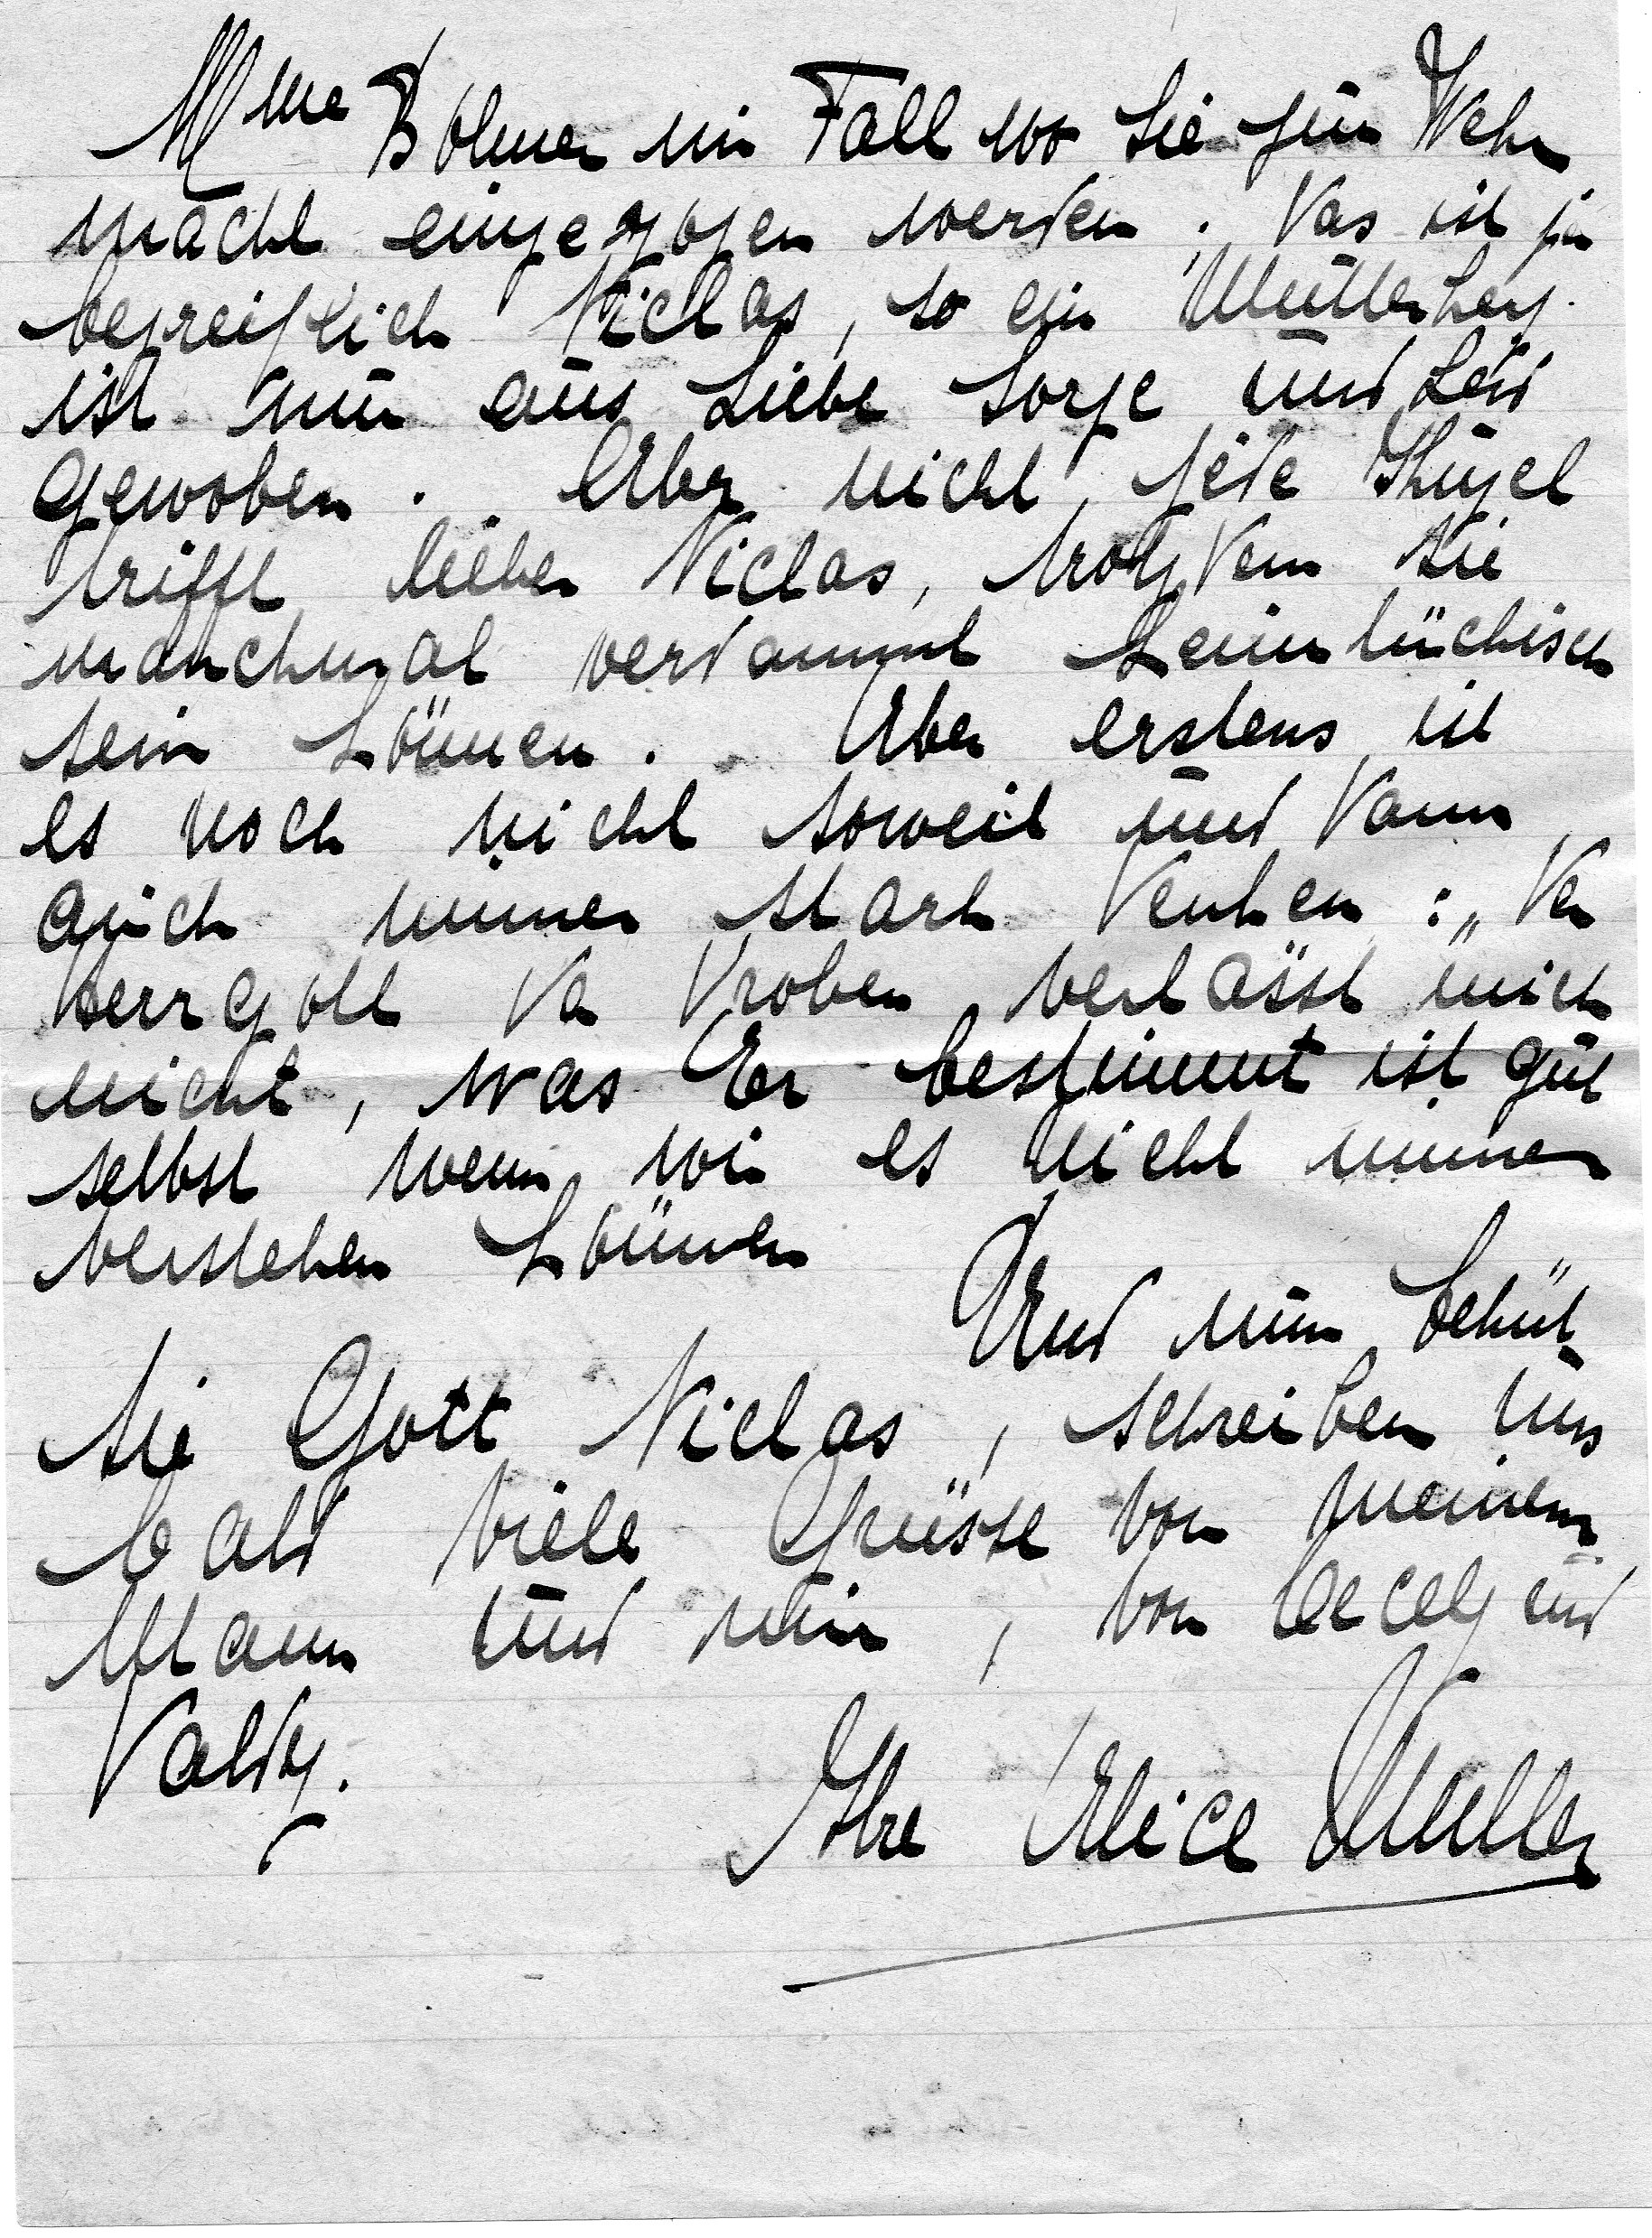 Mme Bohmer im Fall wo Sie zur Wehr
macht eingezogen werden. Das ist ja
begreiflich Niclas, so ein Mutterherz
ist nur aus Liebe Sorge und Leid
gewoben. Aber nicht jede Kugel
trifft lieber Niclas, trotzdem sie
manchmal verdammt heimtückisch
sein können. Aber erstens ist
es noch nicht soweit und dann
auch immer stark denken: „Der
Herrgott da droben verlässt mich
nicht, was Er bestimmt ist gut
selbst wenn wir es nicht immer
verstehen können
Und nun behüt
Sie Gott Niclas, schreiben uns
bald viele Grüsse von meinem
Mann und mir, von Cecely und
Valdy.
Ihre Alice Muller